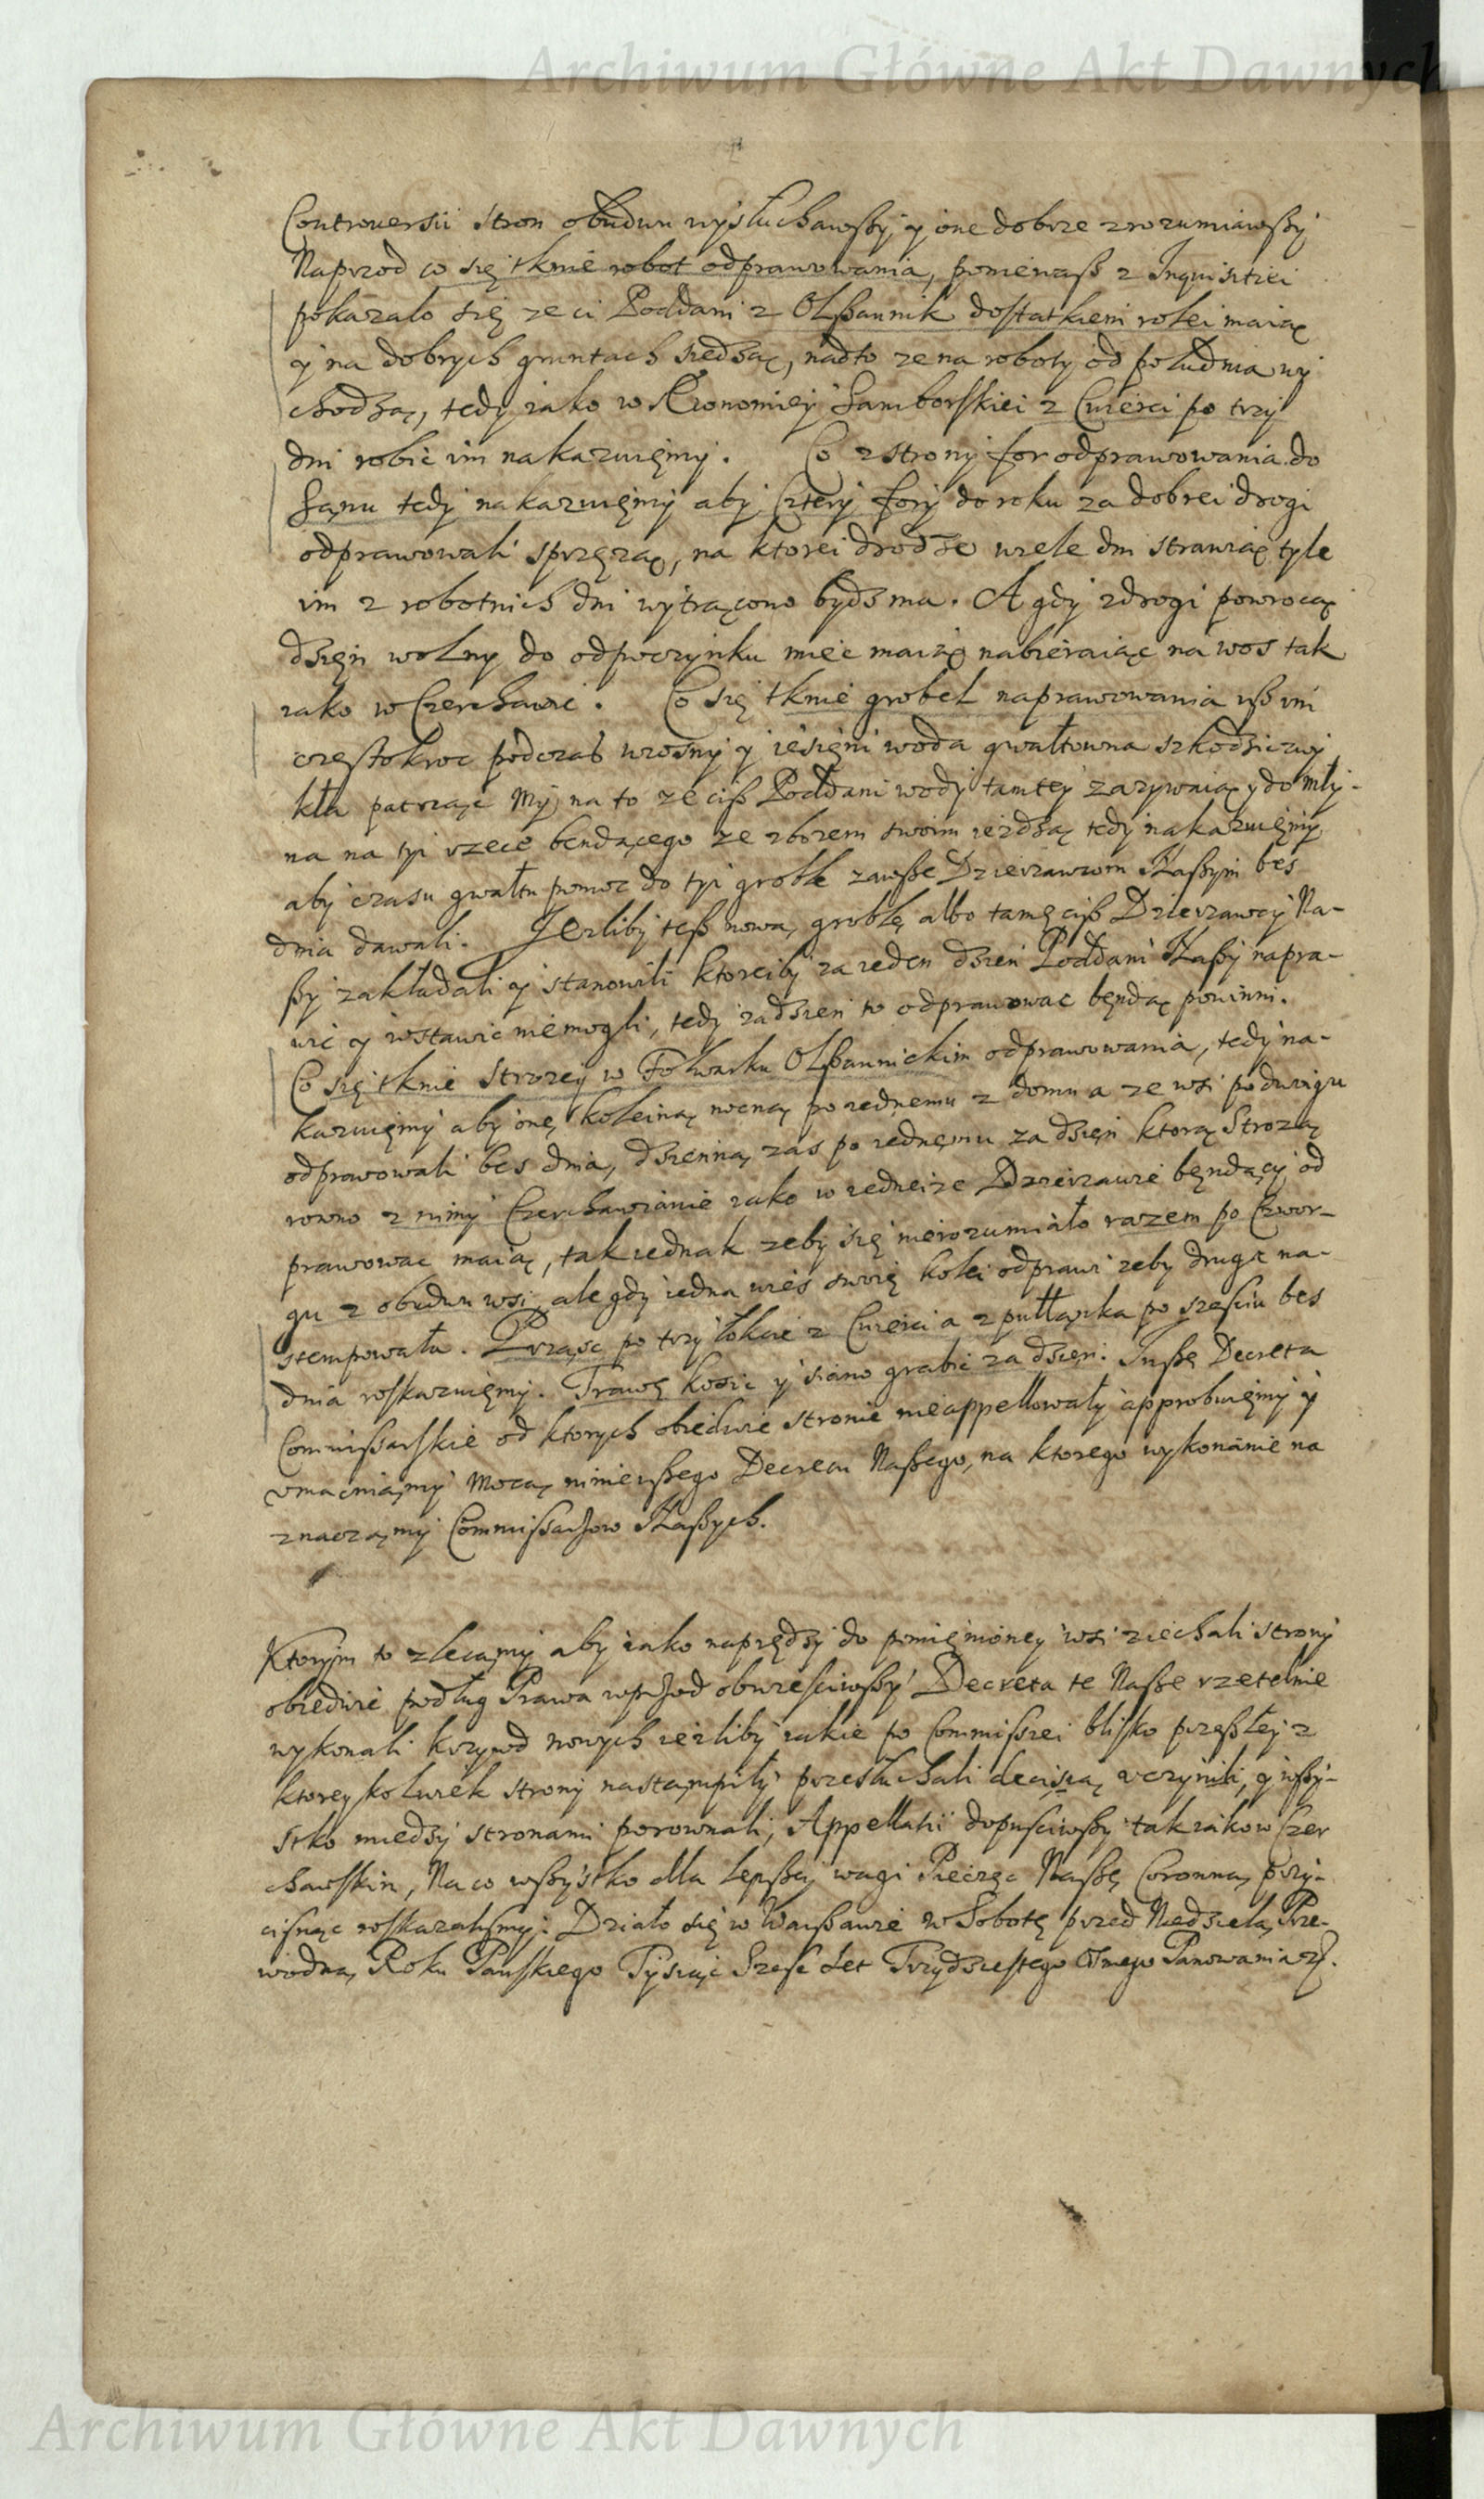 Archiwum Główne Akt Dawnych
Controuersii stron obudwu wysłuchawszy, y one dobrze zrozumiawszy
Naprzod co się tknie robot odprawowania, ponieważ z Inquisitiei
pokazało się ze ci Poddani z Olszannik dostatkiem rolei maiąc
y na dobrych gruntach siedząc, nadto ze na roboty od południa wy
chodzą, tedy iako w Ekonomiey Samborskiei z Cwierci po trzy
dni robić im nakazuięmy. Co z strony for odprawowania do
Sąnu tedy nakazuięmy aby Cztery fory do roku za dobrei drogi
odprawowali sprzęzaą, na ktorei drodze wiele dni strawią tyle
im z robotnich dni wytrącono bydz ma. A gdy z drogi powrocą
dzięn wolny do odpoczynku miec maią nabieraiąc na wos tak
iako w Czerchawie. Co się tknie grobel naprawowania isz im
częstokroc podczas wiosny y iesięni woda gwałtowna szkodzic zwy
kła patrząc My na to ze cisz Poddani wody tamtey zazywaią y do mły-
na na tyi rzece bendącego ze zbozem swoim iezdzą tedy nakazuięmy
aby czasu gwałtu pomoc do tyi groble zawsze Dzierzawcom Naszym bes
dnia dawali. Jezliby tesz nową groblę albo tamę cisz Dzierzawcy Na-
szy zakładali y stanowili ktoreiby za ieden dzien Poddani Naszy napra-
wić y wstawic niemogli, tedy za dzien to odprawowac będą powinni.
Co się tknie Strozey w Folwarku Olszannickim odprawowania, tedy na-
kazuięmy aby onę koleiną nocną po iednemu z domu a ze wsi po dwoygu
odprowowali bes dnia, dzienną zas po iednęmu za dzięn ktorą Strozą
rowno z nimy Czerchawianie iako w iedneize Dzierzawie będący od
prawowac maią, tak iednak zeby się nierozumiało razem po Czwor-
gu z obudwu wsi, ale gdy iedna wies swoię kolei odprawi zeby druga na-
stempowała. Prząsc po trzy łokcie z Cwierci a z pułłąnka po szesciu bes
dnia roskazuięmy. Trawę kosic y siano grabic za dzięn. Insze Decreta
Commissarskie od ktorych obiedwie stronie nieappellowały approbuięmy y
vmacniamy mocą ninieyszego Decretu Naszego, na ktorego wykonanie na
znaczamy Commissarzow Naszych.
Ktorym to zlecamy aby iako naprędzy do pomięnioney wsi ziechali strony
obiedwie podług Prawa wprzod obwiesciwszy Decreta te Nasze rzetelnie
wykonali krzywd nowych iezliby iakie po Commissiei blisko przeszłey z
ktorey kolwiek strony nastąmpiły przesłuchali decisią vczynili, y wszy-
stko miedzy stronami porownali, Appellatii dopusciwszy tak iako w Czer
chawskim, Na co wszystko dla lepszey wagi Pieczęc Naszę Coronną przy-
cisnąc roskazalismy. Działo się w Warszawie w Sobotę przed Niedzielą Prze-
wodną Roku Panskiego Tysiąc Szesc Set Trzydziestego Osmego Panowania
Archiwum Główne Akt Dawnych